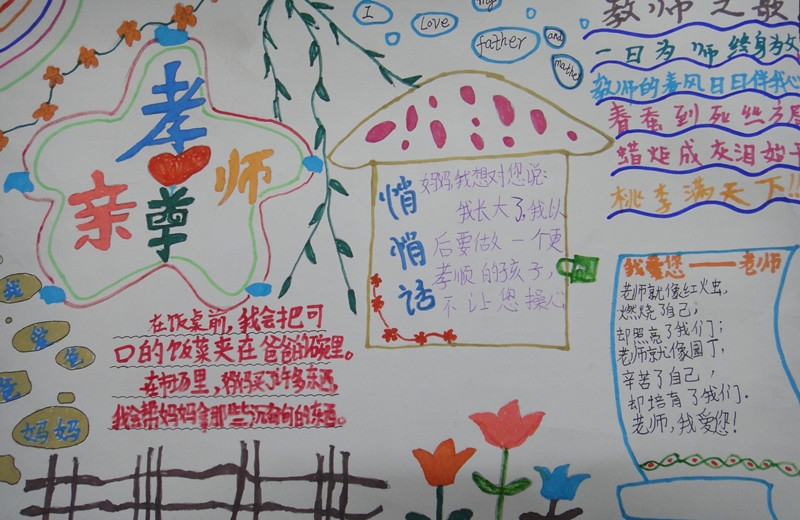 I
Love
my
father
and
mathe
孝
亲
尊
师
教师之歌
一日为师终身为父
教师的春风日日伴我心
春蚕到死丝方尽
蜡炬成灰泪始干
桃李满天下!!
悄悄话
妈妈我想对您说:
我长大了,我以
后要做一个更
孝顺的孩子,
不让您操心
我爱您——老师
老师就像红火虫,
燃烧了自己;
却照亮了我们;
老师就像园丁,
辛苦了自己,
却培育了我们.
老师,我爱您!
在饭桌前,我会把可
口的饭菜夹在爸爸的碗里。
在市场里,妈妈买了许多东西,
我会帮妈妈拿那些沉甸甸的东西。
我
爱
爸
爸
妈妈